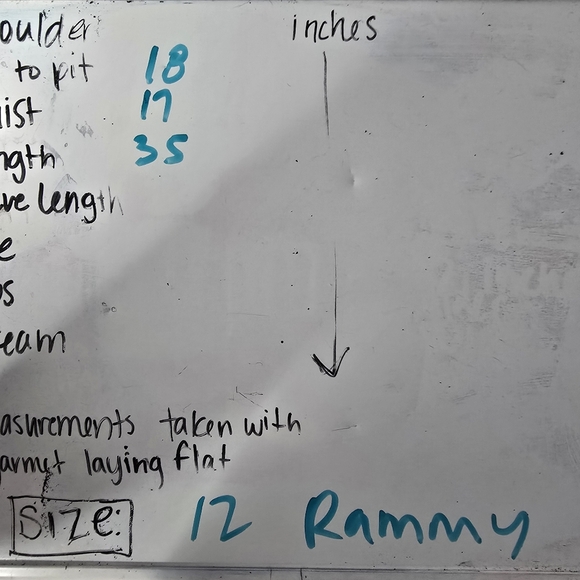 oulder inches
to pit 18
ist 17
ngth 35
ve length
e
os
eam
asurements taken with
armet laying flat
SIZE: 12 Rammy